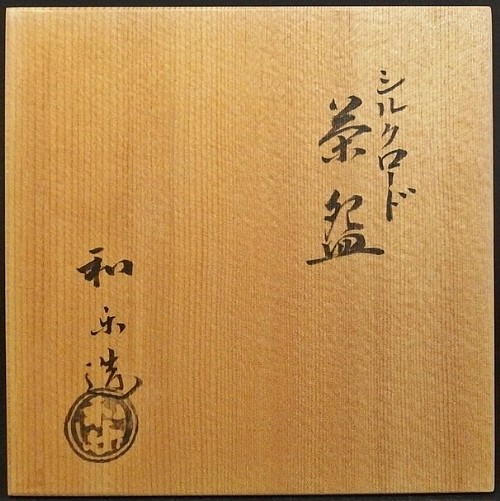 シルクロード
茶盌
和楽造